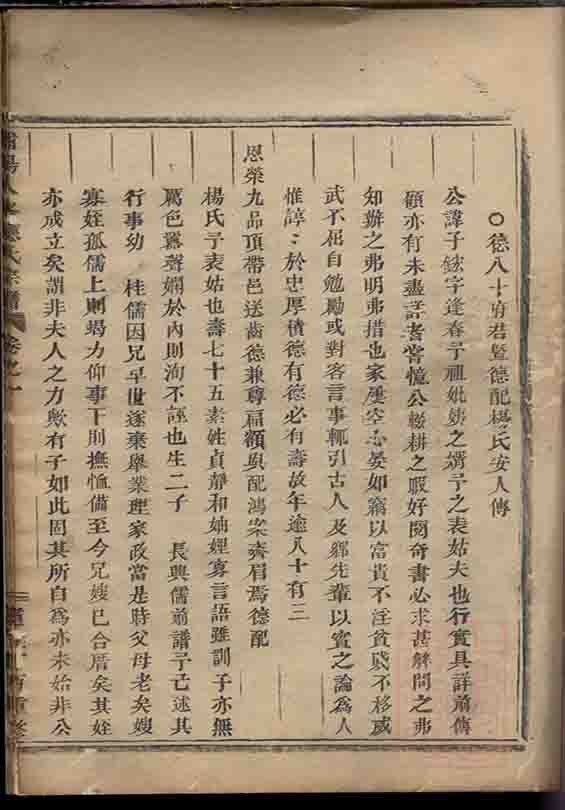 ○德八十府君暨德配楊氏安人傳
公諱子鉉字逢春予祖妣姨之壻予之表姑夫也行實具詳前傳
顧亦有未盡詳者嘗憶公輟耕之暇好閱奇書必求甚解問之弗
知辦之弗明弗措也家屢空志晏如竊以富貴不淫貧賤不移威
武不屈自勉勵或對客言事輒引古人及鄉先輩以實之論為人
惟諄諄於忠厚積德有德必有壽故年逾八十有三
恩榮九品頂帶邑送齒德兼尊福額與配鴻案齊眉焉德配
楊氏予表姑也壽七十五素性貞靜和妯娌寡言語雖訓子亦無
厲色囂聲嫻於內則洵不誣也生二子 長興儒前譜予已述其
行事幼 桂儒因兄早世遂棄舉業理家政當是時父母老矣嫂
寡姪孤儒上則竭力仰事下則撫恤備至今兄嫂已合厝矣其姪
亦成立矣謂非夫人之力歟有子如此固其所自為亦未始非公
氏宗譜 卷之一